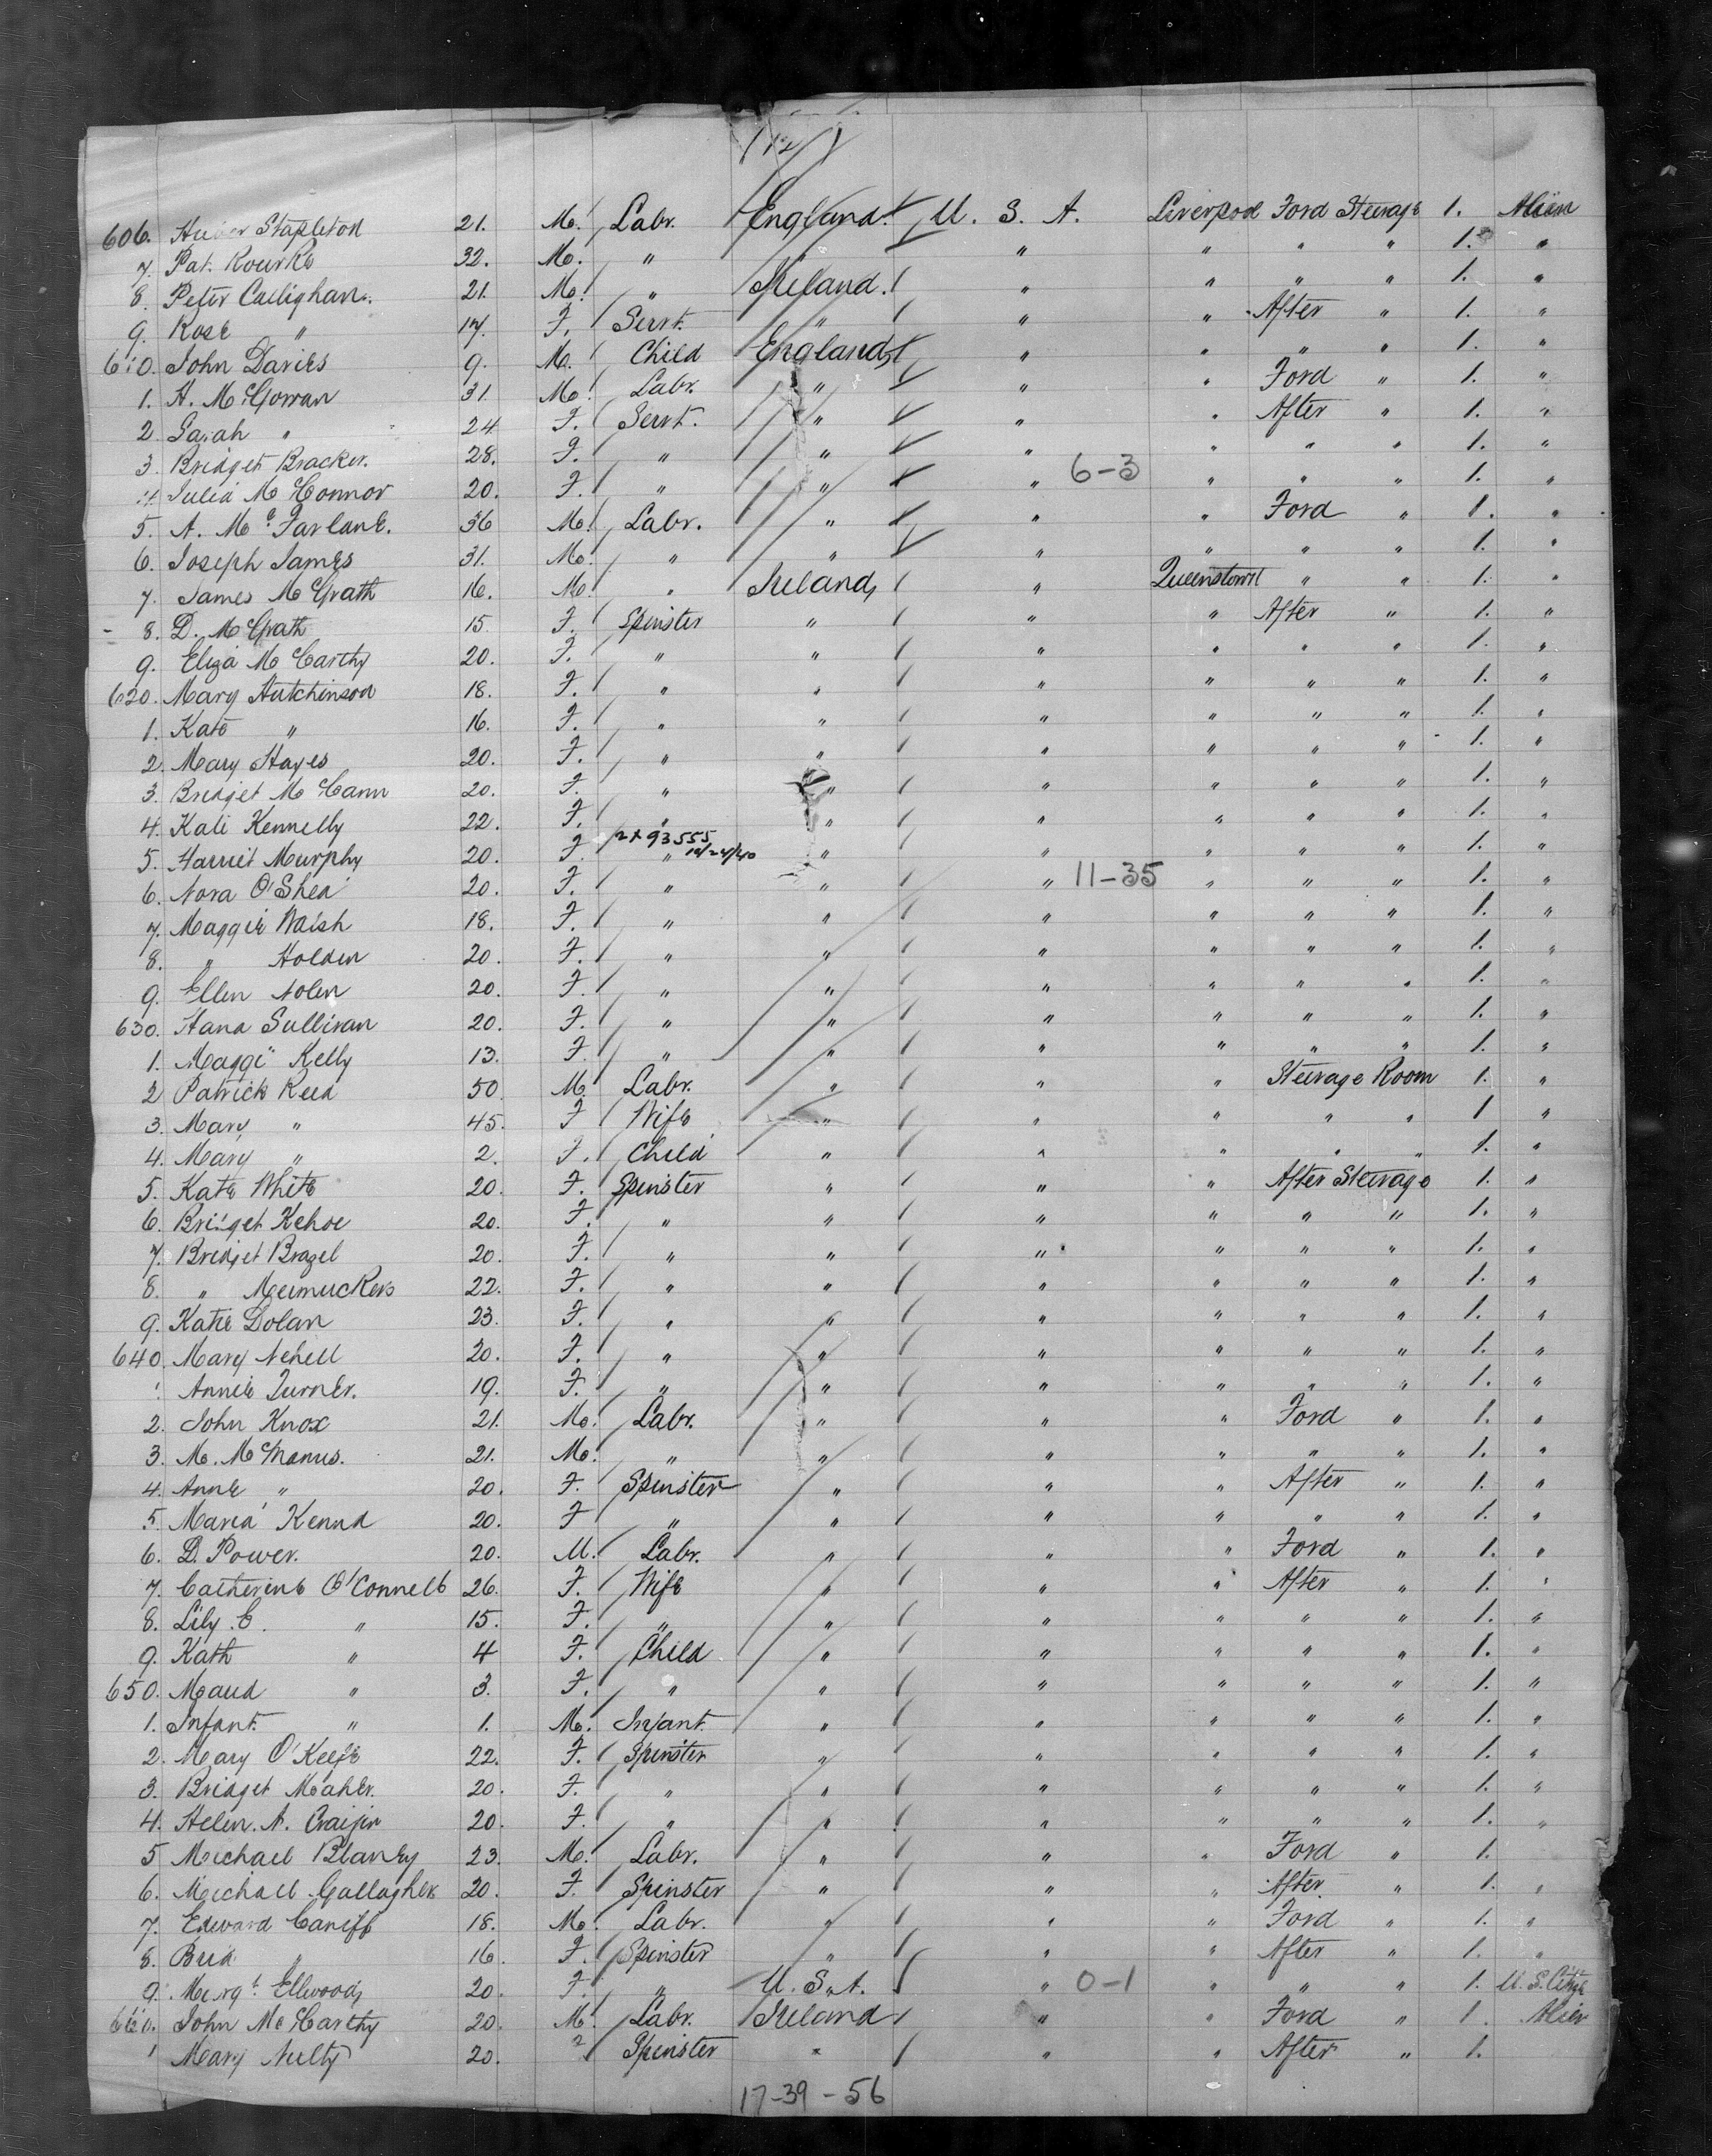 (12)
606. Stapleton 21. M. Labr. England. U. S. A. Liverpool Ford Steerage 1. Alien
7. Pat. Rourke 32. M. " " " " " 1. "
8. Peter Callighan. 21. M. " Ireland. " " " " 1. "
9. Rose " 17. F. Servt. " " " After " 1. "
610. John Davies 9. M. Child England " " " " 1. "
1. H. McGowan 31. M. Labr. " " " Ford " 1. "
2. Sarah " 24. F. Servt. " " " After " 1. "
3. Bridget Bracken. 28. F. " " " " " " 1. "
4. Julia McConnor 20. F. " " " 6-3 " " " 1. "
5. A. McFarlane. 36 M. Labr. " " " Ford " 1. "
6. Joseph James 31. M. " " " " " " 1. "
7. James McGrath 16. M. " Ireland, " Queenstown " " 1. "
8. D. McGrath 15. F. Spinster " " " After " 1. "
9. Eliza McCarthy 20. F. " " " " " " 1. "
620. Mary Hutchinson 18. F. " " " " " " 1. "
1. Kate " 16. F. " " " " " " 1. "
2. Mary Hayes 20. F. " " " " " " 1. "
3. Bridget McCann 20. F. " " " " " " 1. "
4. Kate Kennelly 22. F. " " " " " " 1. "
2x93555
5. Harriet Murphy 20. F. " 10/24/40 " " " " " 1. "
6. Nora O'Shea 20. F. " " " 11-35 " " " 1. "
7. Maggie Walsh 18. F. " " " " " " 1. "
8. " Holden 20. F. " " " " " " 1. "
9. Ellen Nolen 20. F. " " " " " " 1. "
630. Hana Sullivan 20. F. " " " " " " 1. "
1. Maggie Kelly 13. F. " " " " " " 1. "
2. Patrick Reid 50. M. Labr. " " " Steerage Room 1. "
3. Mary " 45. F. Wife " " " " " 1 "
4. Mary " 2. F. Child " " " " " 1. "
5. Kate White 20. F. Spinster " " " After Steerage 1. "
6. Bridget Kehoe 20. F. " " " " " " 1. "
7. Bridget Brazel 20. F. " " " " " " 1. "
8. " 22. F. " " " " " " 1. "
9. Katie Dolan 23. F. " " " " " " 1. "
640. Mary Nehill 20. F. " " " " " " 1. "
1. Annie Turner. 19. F. " " " " " " 1. "
2. John Knox 21. M. Labr. " " " Ford " 1. "
3. M. McManus. 21. M. " " " " " " 1. "
4. Anne " 20. F. Spinster " " " After " 1. "
5. Maria Kenna 20. F " " " " " " 1. "
6. D. Power. 20. M. Labr. " " " Ford " 1. "
7. Catherine O'Connell 26. F. Wife " " " After " 1. "
8. Lily C. " 15. F. " " " " " " 1. "
9. Kath " 4 F. Child " " " " " 1. "
650. Maud " 3. F. " " " " " " 1. "
1. Infant. " 1. M. Infant. " " " " " 1. "
2. Mary O'Keefe 22. F. Spinster " " " " " 1. "
3. Bridget Maher. 20. F. " " " " " " 1. "
4. Helen. A. 20. F. " " " " " " 1. "
5 Michael 23. M. Labr. " " " Ford " 1.
6. Michael Gallagher 20. F. Spinster " " " After " 1. "
7. Edward Caniff 18. M. Labr. " " " Ford " 1. "
8. Brid " 16. F. Spinster " " " After " 1. "
9. Margt. Ellwood, 20. F. " U. S. A. " 0-1 " " " 1. U. S. Citize
660. John McCarthy 20. M. Labr. Ireland " " Ford " 1. Alien
1 Mary Nulty 20. Spinster " " " After " 1.
17-39-56